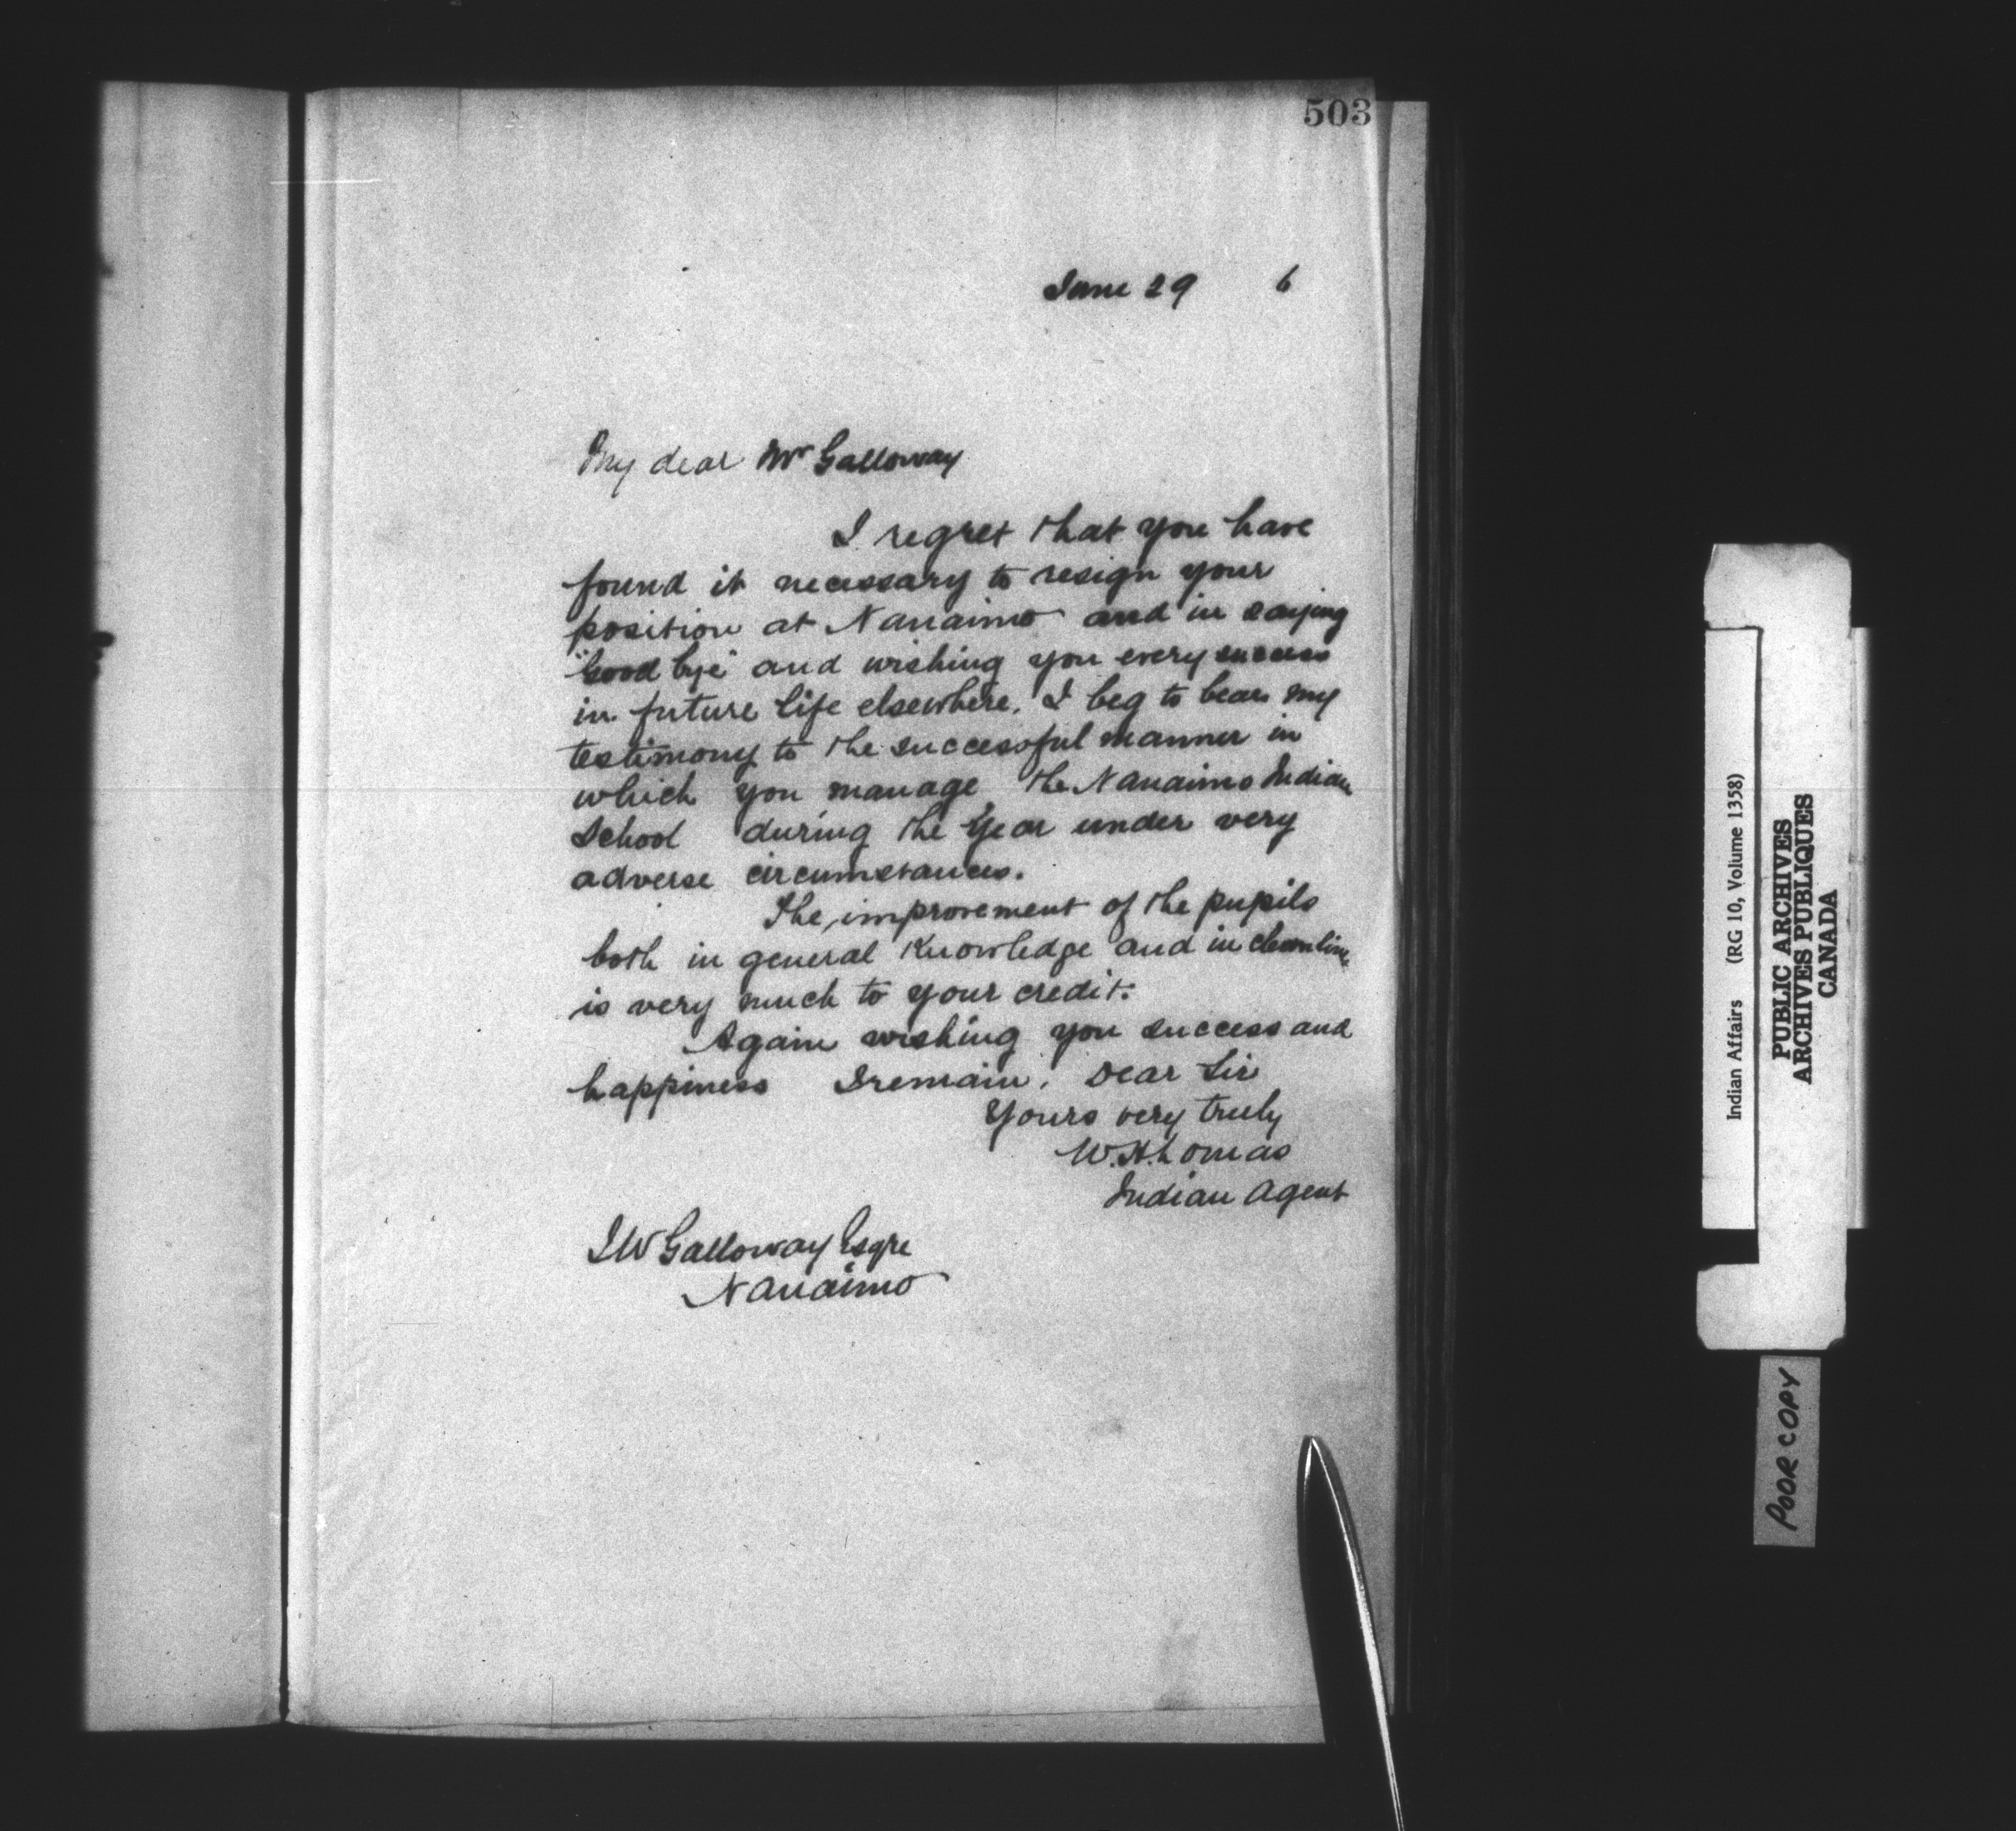 503
June 29 6
My dear Mr Galloway
I regret that you have
found it necessary to resign your
position at Nanaimo and in saying
"Good bye" and wishing you every success
in future life elsewhere. I beg to bear my
testimony to the successful manner in
which you manage the Nanaimo Indian
School during the Year under very
adverse circumstances.
The improvement of the pupils
both in general Knowledge and in
is very much to your credit.
Again wishing you success and
happiness I remain, Dear Sir
Yours very truly
W.H. Lomas
Indian Agent
J W Galloway Esqre
Nanaimo
Indian Affairs (RG 10, Volume 1358)
PUBLIC ARCHIVES
ARCHIVES PUBLIQUES
CANADA
POOR COPY